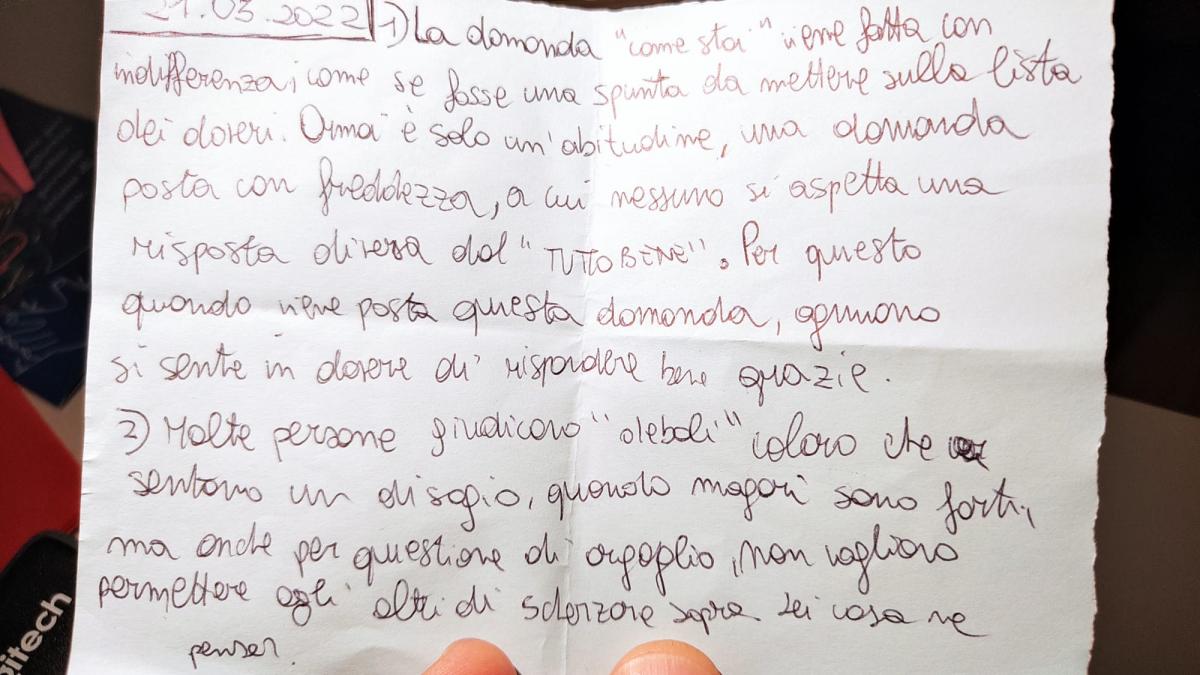 21.03.2022 1) La domanda "come stai" viene fatta con
indifferenza, come se fosse una spunta da mettere sulla lista
dei doveri. Ormai è solo un'abitudine, una domanda
posta con freddezza, a cui nessuno si aspetta una
risposta diversa dal "TUTTO BENE". Per questo
quando viene posta questa domanda, ognuno
si sente in dovere di rispondere bene grazie.
2) Molte persone giudicano "deboli" coloro che
sentono un disagio, quando magari sono forti,
ma anche per questione di orgoglio, non vogliono
permettere agli altri di scherzare sopra. Lei cosa ne
pensa?
gitech